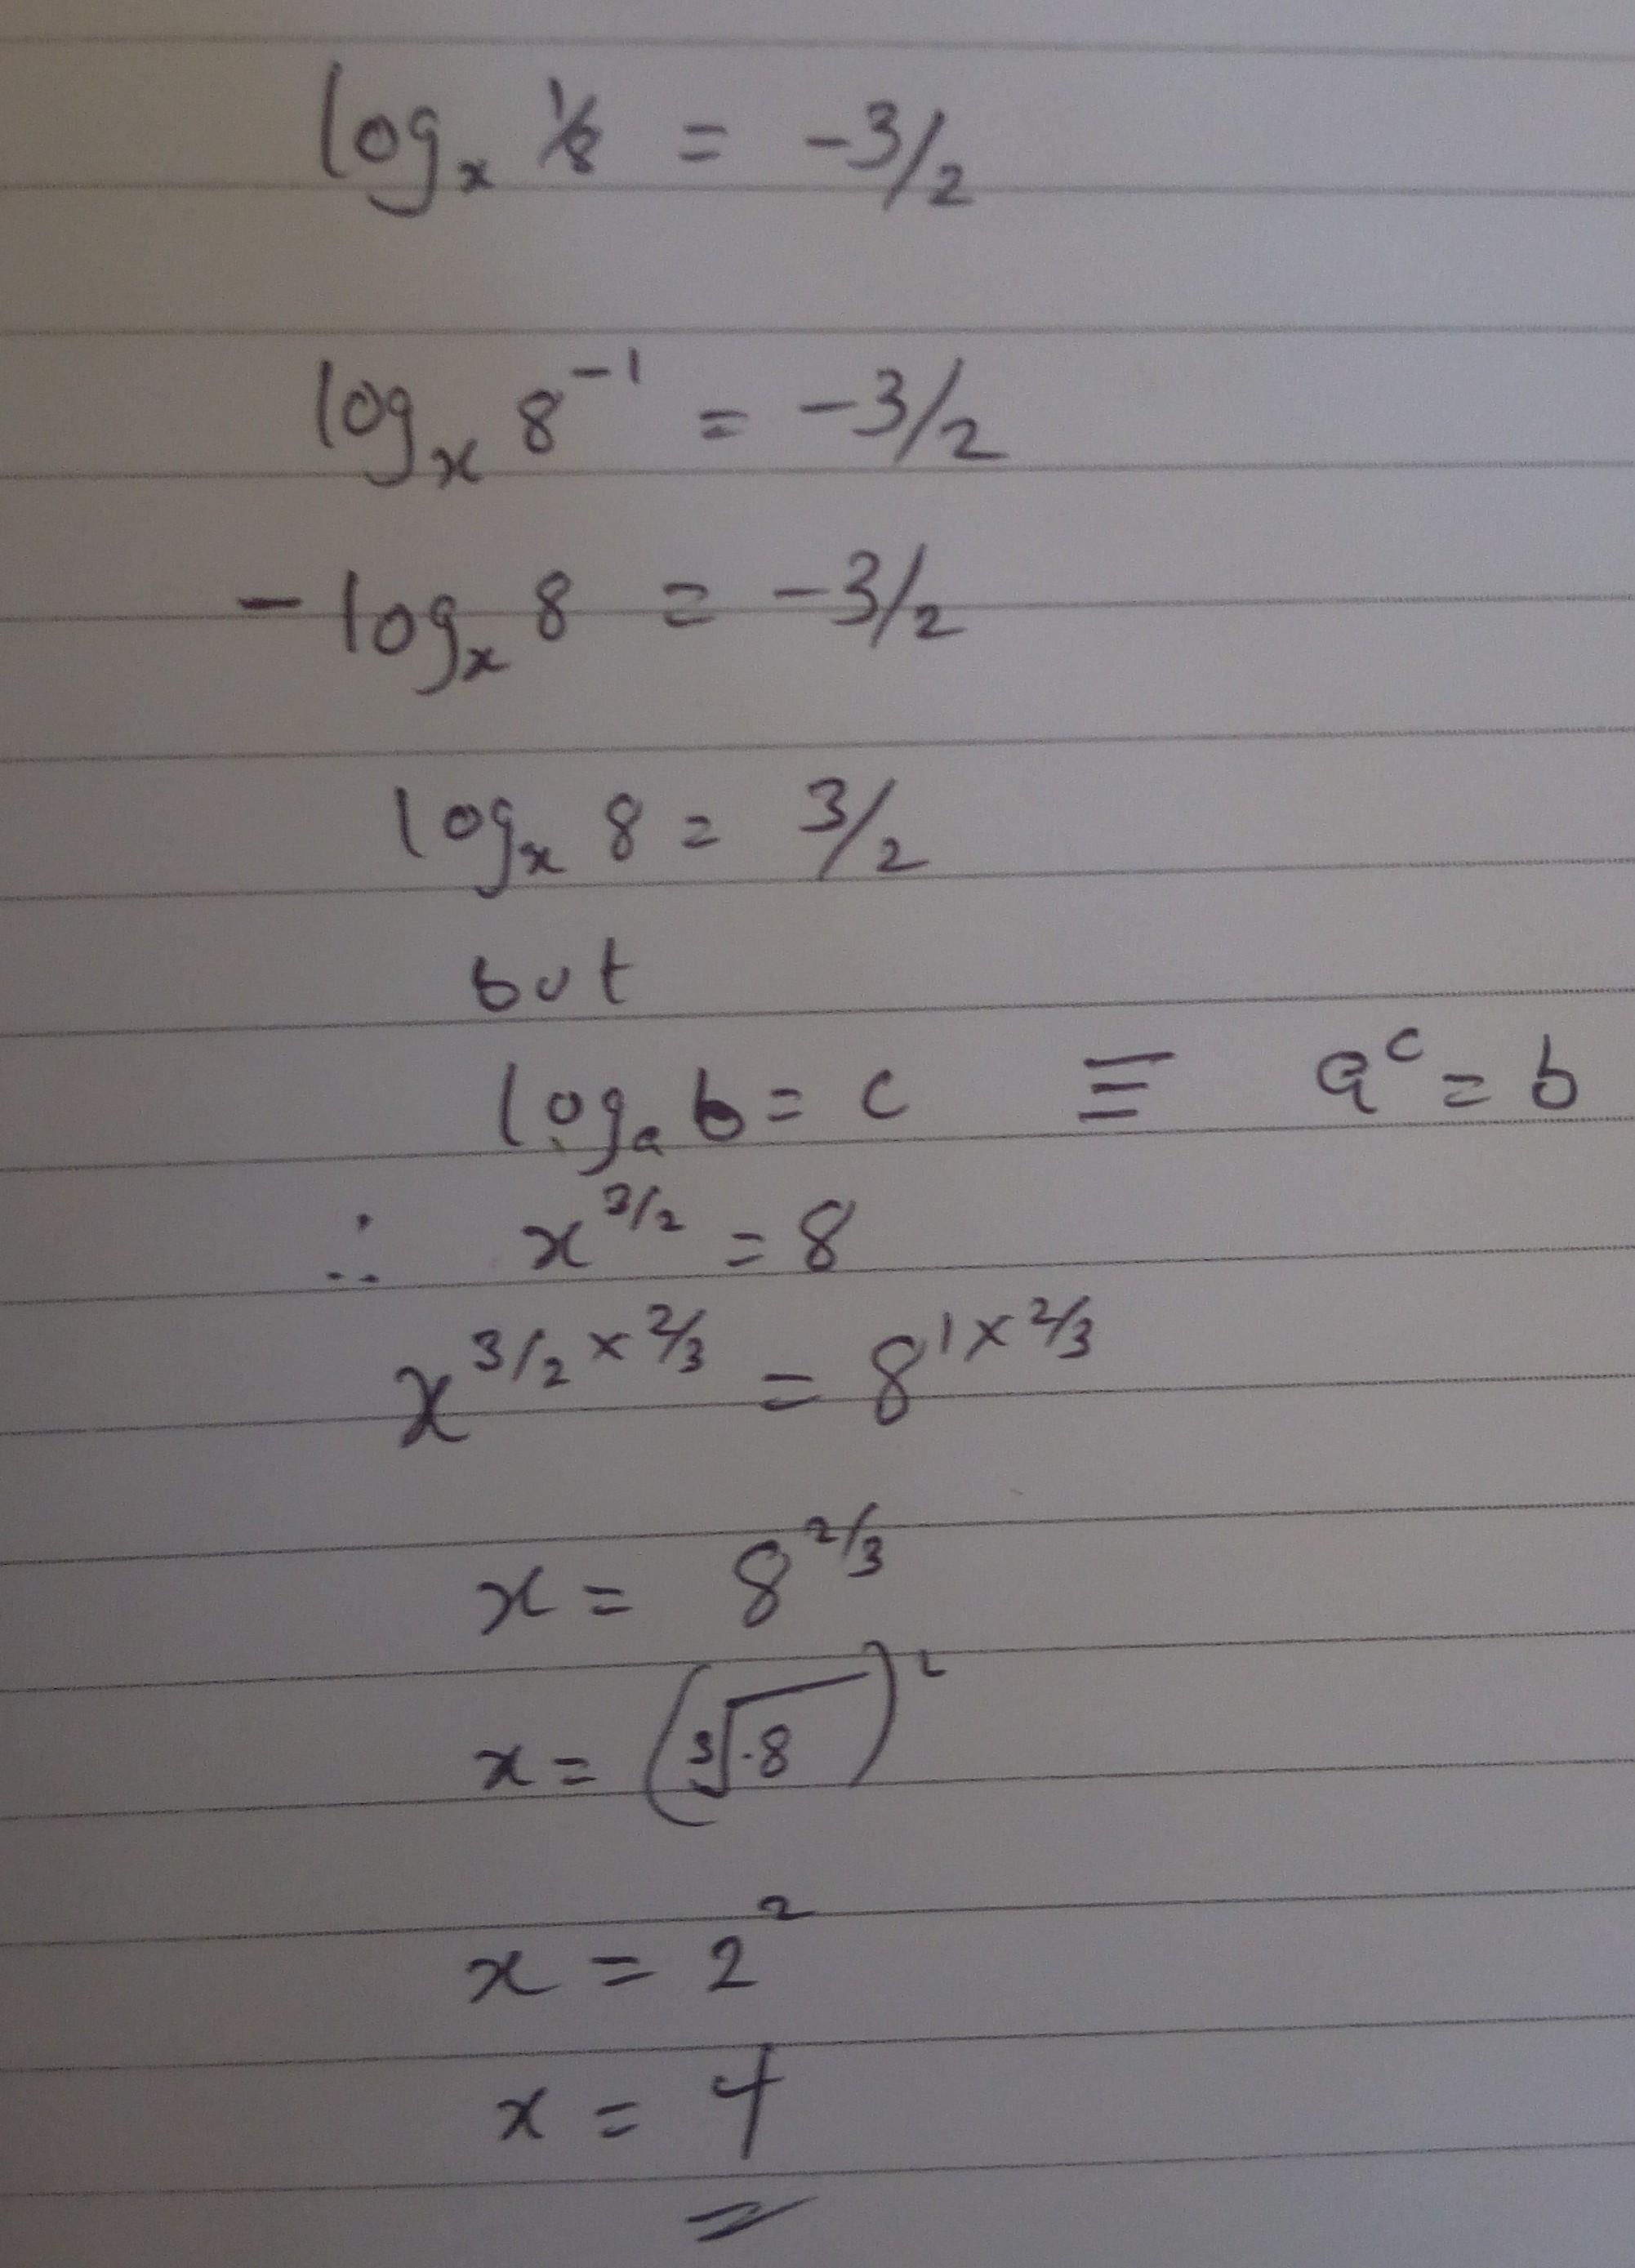 logₓ 1/8 = -3/2
logₓ 8⁻¹ = -3/2
- logₓ 8 = -3/2
logₓ 8 = 3/2
but
logₐ b = c ≡ a^c = b
∴ x^3/2 = 8
x^3/2 × 2/3 = 8^1 × 2/3
x = 8^2/3
x = (³√8)²
x = 2²
x = 4